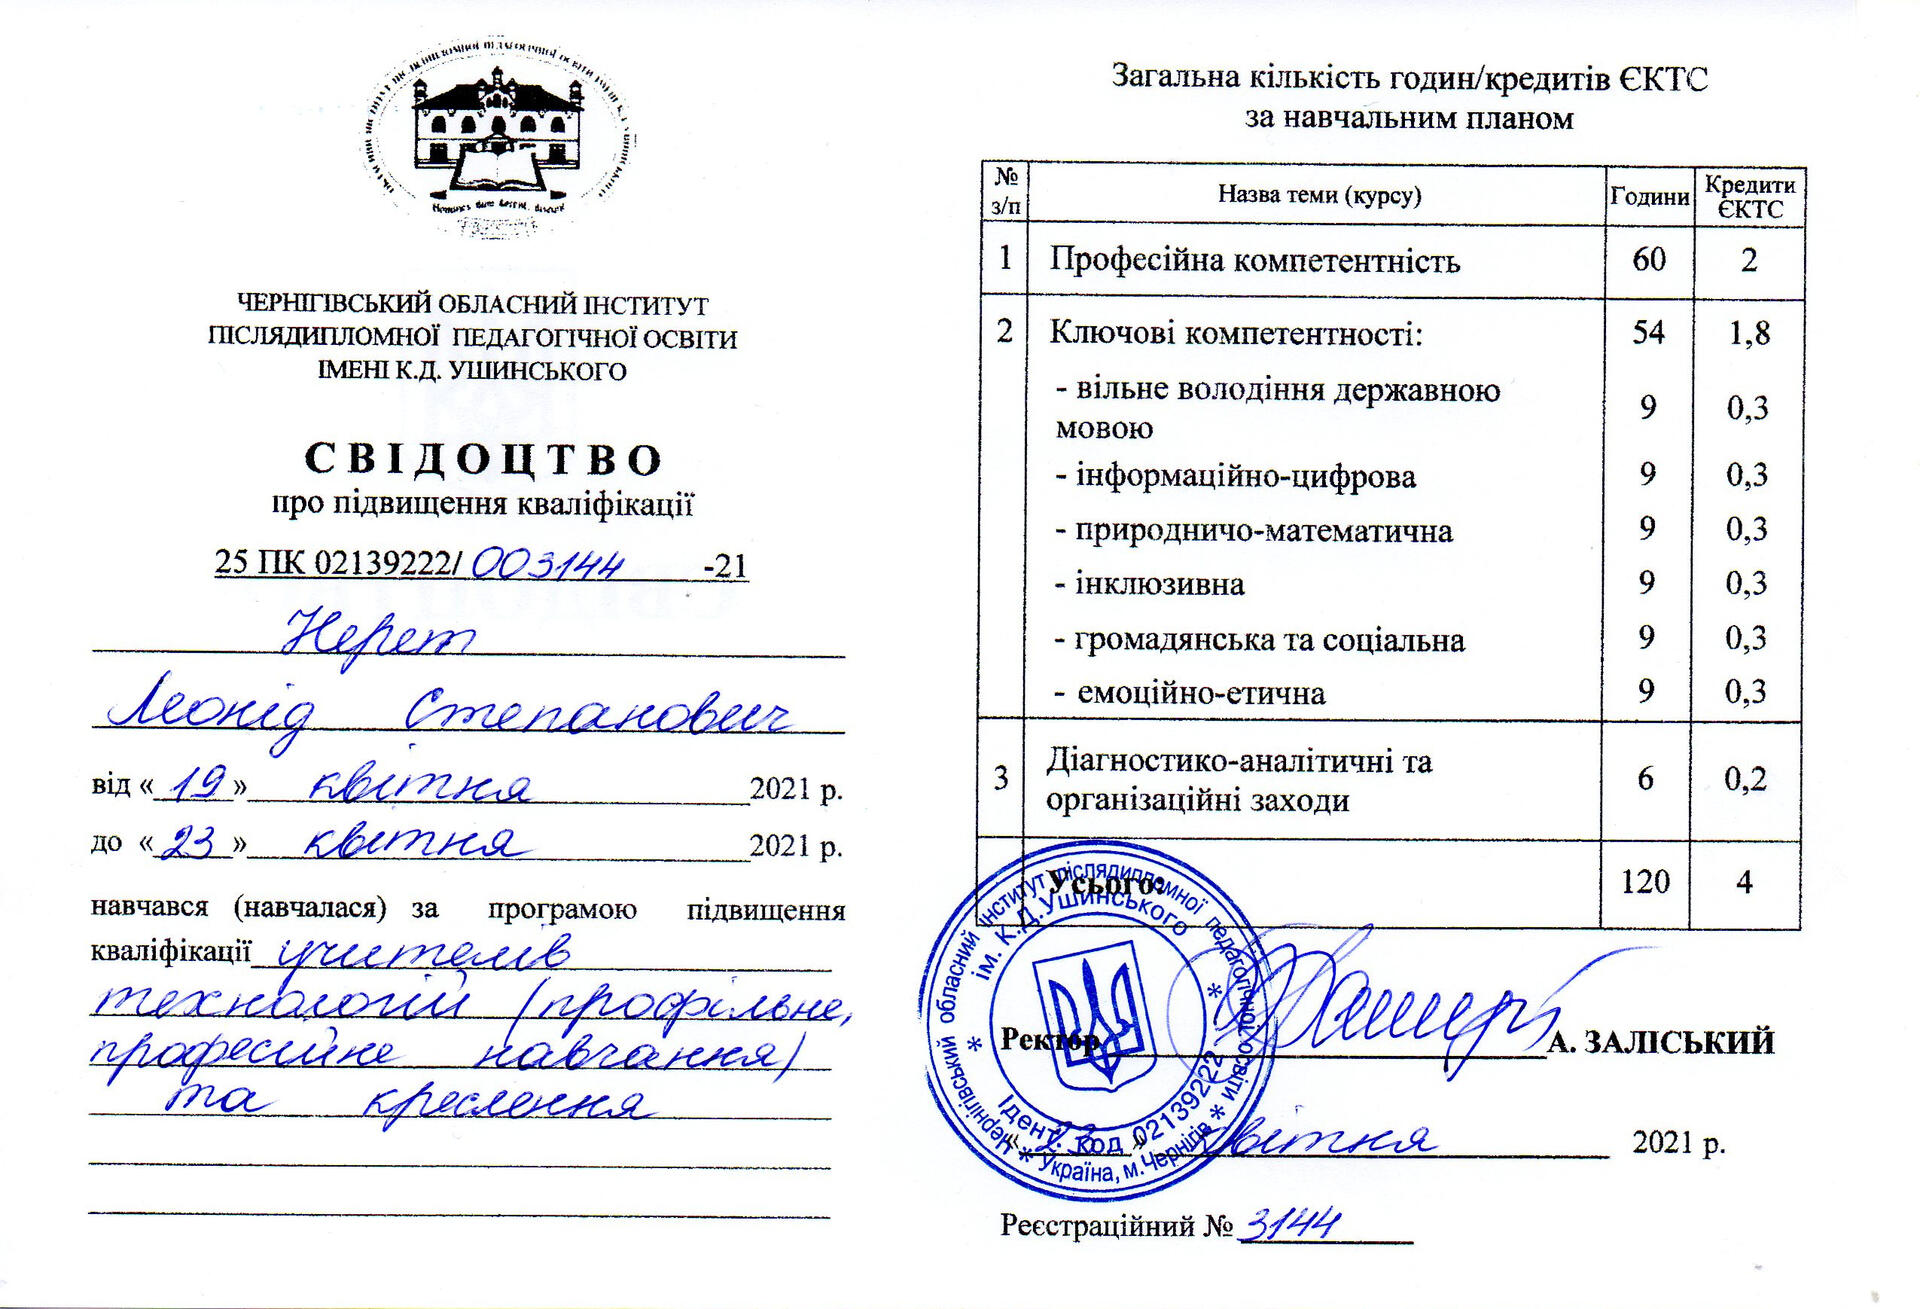 ЧЕРНІГІВСЬКИЙ ОБЛАСНИЙ ІНСТИТУТ
ПІСЛЯДИПЛОМНОЇ ПЕДАГОГІЧНОЇ ОСВІТИ
ІМЕНІ К.Д. УШИНСЬКОГО
СВІДОЦТВО
про підвищення кваліфікації
25 ПК 02139222/ 003144 -21
Нерет
Леонід Степанович
від « 19 » квітня 2021 р.
до « 23 » квітня 2021 р.
навчався (навчалася) за програмою підвищення
кваліфікації учителів
технологій (профільне,
професійне навчання)
та креслення
Загальна кількість годин/кредитів ЄКТС
за навчальним планом
№ з/п Назва теми (курсу) Години Кредити ЄКТС
1 Професійна компетентність 60 2
2 Ключові компетентності: 54 1,8
- вільне володіння державною
мовою 9 0,3
- інформаційно-цифрова 9 0,3
- природничо-математична 9 0,3
- інклюзивна 9 0,3
- громадянська та соціальна 9 0,3
- емоційно-етична 9 0,3
3 Діагностико-аналітичні та
організаційні заходи 6 0,2
Усього: 120 4
Ректор А. ЗАЛІСЬКИЙ
« 23 » квітня 2021 р.
Реєстраційний № 3144
Чернігівський обласний інститут післядипломної педагогічної освіти
ім. К.Д.Ушинського
Ідент. код 02139222
* Україна, м.Чернігів *